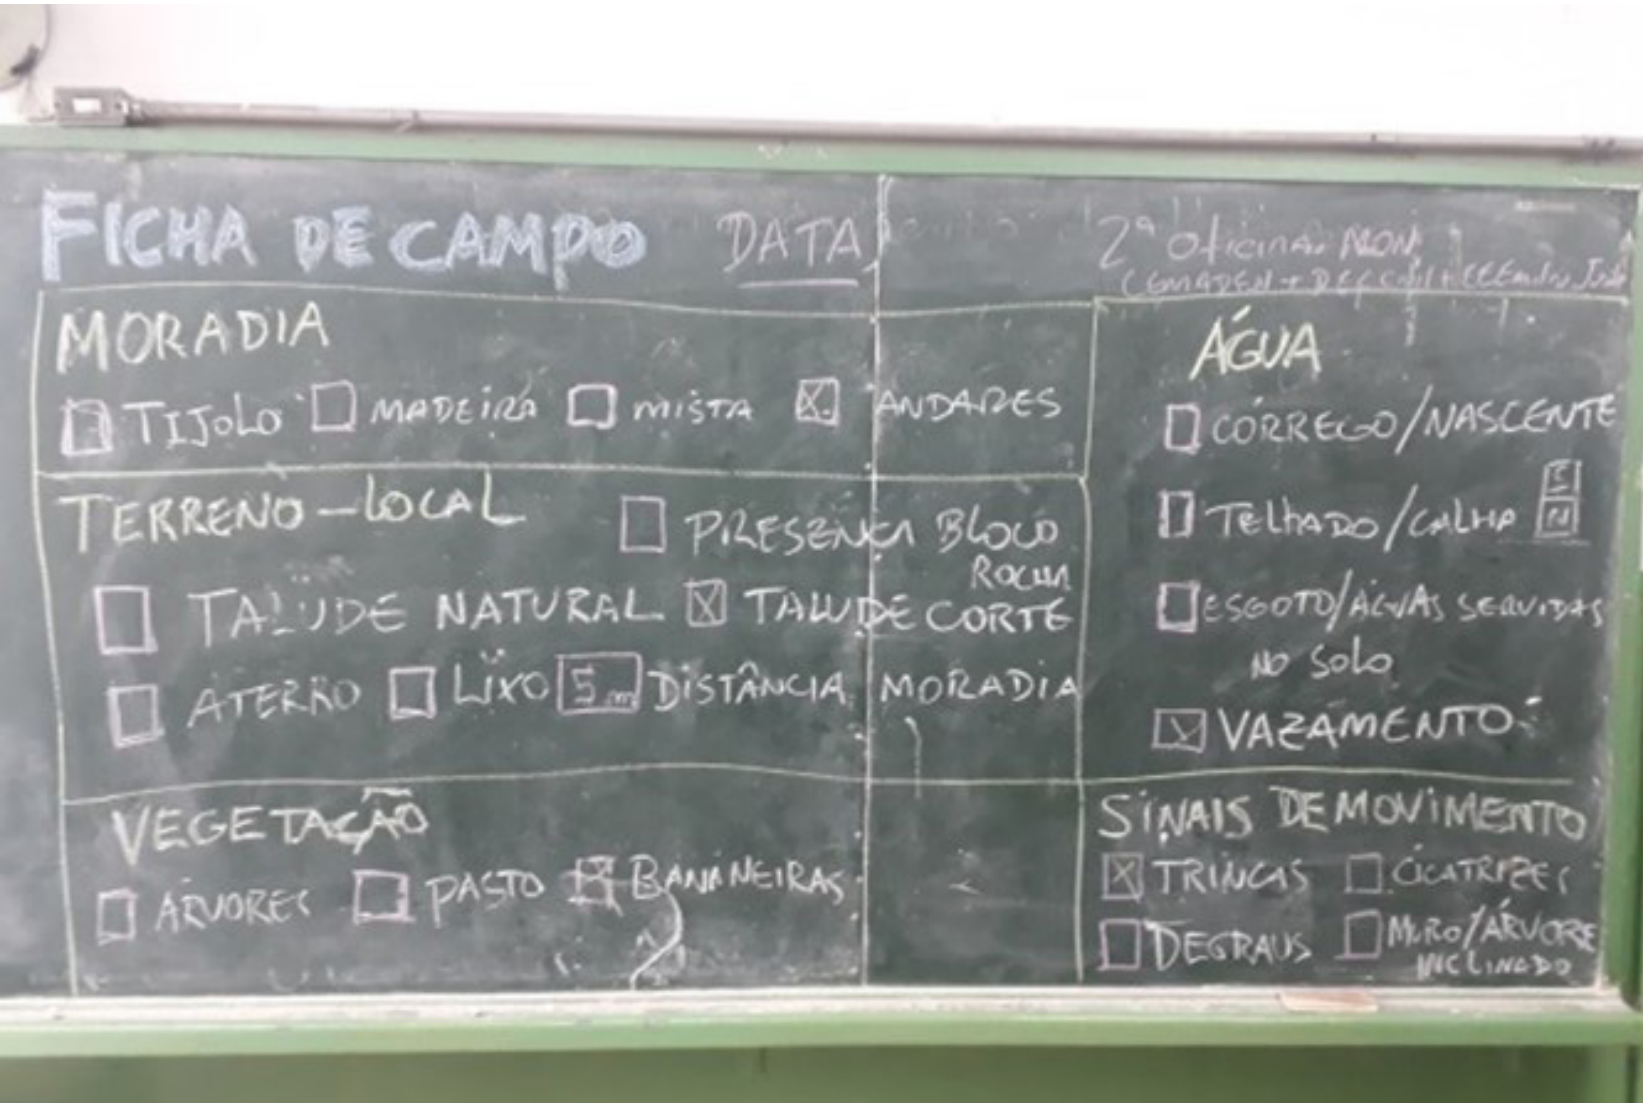 FICHA DE CAMPO DATA
2ª Oficina MON
MORADIA
TIJOLO MADEIRA MISTA X ANDARES
TERRENO-LOCAL
PRESENÇA BLOCO
ROCHA
TALUDE NATURAL X TALUDE CORTE
ATERRO LIXO 5m DISTÂNCIA MORADIA
VEGETAÇÃO
ÁRVORES PASTO X BANANEIRAS
ÁGUA
CÓRREGO/NASCENTE
TELHADO/CALHA S
N
ESGOTO/ÁGUAS SERVIDAS
NO SOLO
VAZAMENTO
SINAIS DE MOVIMENTO
X TRINCAS CICATRIZES
DEGRAUS MURO/ÁRVORE
INCLINADO